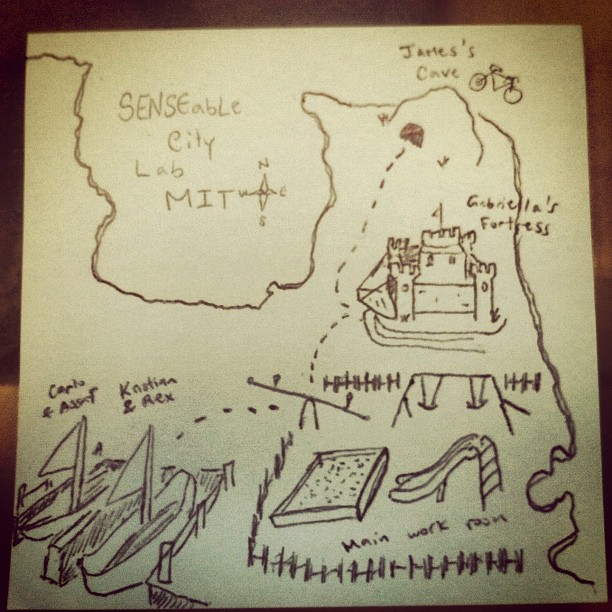 James's
Cave
SENSEable
City
Lab
MIT
N
W E
S
Gabriella's
Fortress
Carlo
& Assaf
Kristian
& Rex
Main work room